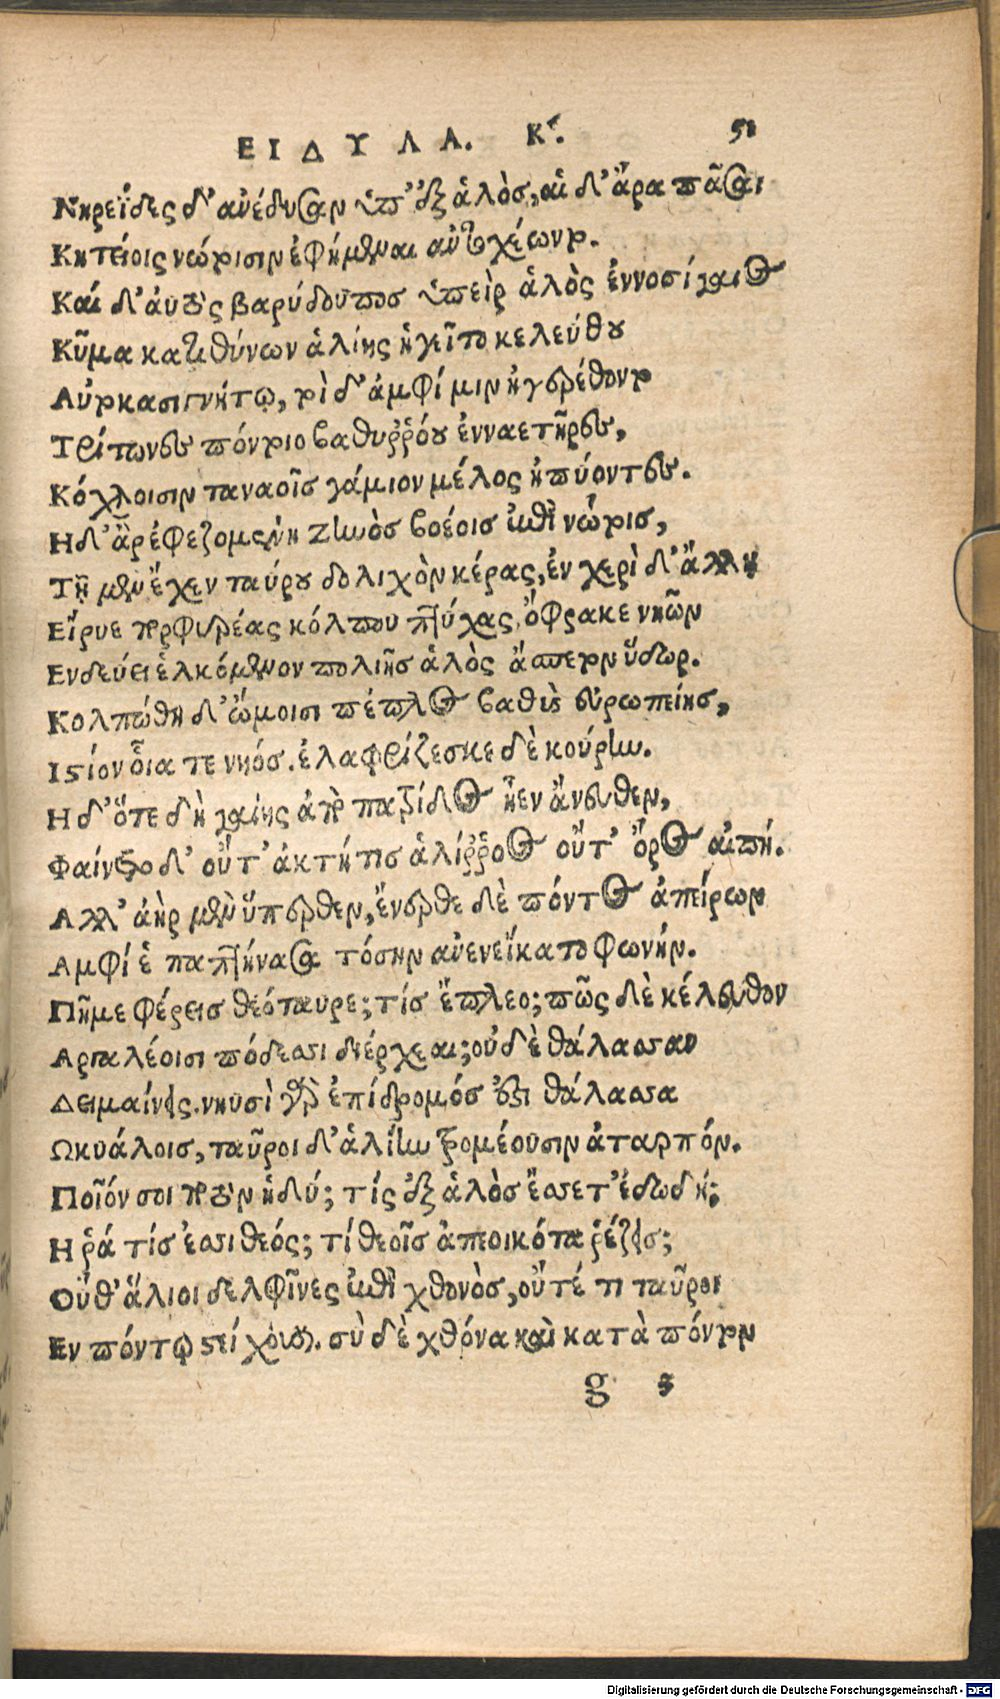 ΕΙΔΥΛΛ. Κ. 51
Νηρεΐδες δ' ἀνέδυσαν ὑπ' ἐξ ἁλὸς, αἱ δ' ἄρα πᾶσαι
Κητείοις νώτοισιν ἐφήμεναι ἀντιχέωντο.
Καί δ' αὐτὸς βαρύδουπος ὑπεὶρ ἁλὸς ἐννοσίγαιος
Κῦμα κατιθύνων ἁλίης ἡγεῖτο κελεύθου
Αὐτοκασιγνήτῳ, τοὶ δ' ἀμφί μιν ἠγερέθοντο
Τρίτωνες πόντοιο βαθυῤῥόου ἐνναετῆρες,
Κόχλοισιν ταναοῖς γάμιον μέλος ἠπύοντες.
Η δ' ἄρ' ἐφεζομένη Ζηνὸς βοέοις ἐπὶ νώτοις,
Τῇ μὲν ἔχεν ταύρου δολιχὸν κέρας, ἐν χερὶ δ' ἄλλῃ
Εἴρυε πορφυρέας κόλπου πτύχας, ὄφρακε νηῶν
Ενδεύει ἑλκόμενον πολιῆς ἁλὸς ἄσπετον ὕδωρ.
Κολπώθη δ' ὤμοισι πέπλος βαθὺς εὐρωπείης,
Ιστίον οἷα τε νηός. ἐλαφρίζεσκε δὲ κούρην.
Η δ' ὅτε δὴ γαίης ἀπὸ πατρίδος ἦεν ἄνευθεν,
Φαίνετο δ' οὔτ' ἀκτή τις ἁλίῤῥοος οὔτ' ὄρος αἰπή.
Αλλ' ἀὴρ μὲν ὕπερθεν, ἔνερθε δὲ πόντος ἀπείρων
Αμφί ἑ παπτήνασα τόσην ἀνενείκατο φωνήν.
Πῆ με φέρεις θεόταυρε; τίς ἔπλεο; πῶς δὲ κέλευθον
Αρπαλέοισι πόδεσσι διέρχεαι; οὐδὲ θάλασσαν
Δειμαίνεις. νηυσὶ γὰρ ἐπίδρομός ἐστι θάλασσα
Ωκυάλοις, ταῦροι δ' ἁλίην τρομέουσιν ἀταρπόν.
Ποῖόν σοι ποτὸν ἡδύ; τίς ἐξ ἁλὸς ἔσσετ' ἐδωδή;
Η ῥά τίς ἐσσι θεός; τί θεοῖς ἀπεοικότα ῥέζεις;
Οὔθ' ἅλιοι δελφῖνες ἐπὶ χθονὸς, οὔτέ τι ταῦροι
Εν πόντῳ στείχουσι. σὺ δὲ χθόνα καὶ κατὰ πόντον
g 3
Digitalisierung gefördert durch die Deutsche Forschungsgemeinschaft - DFG